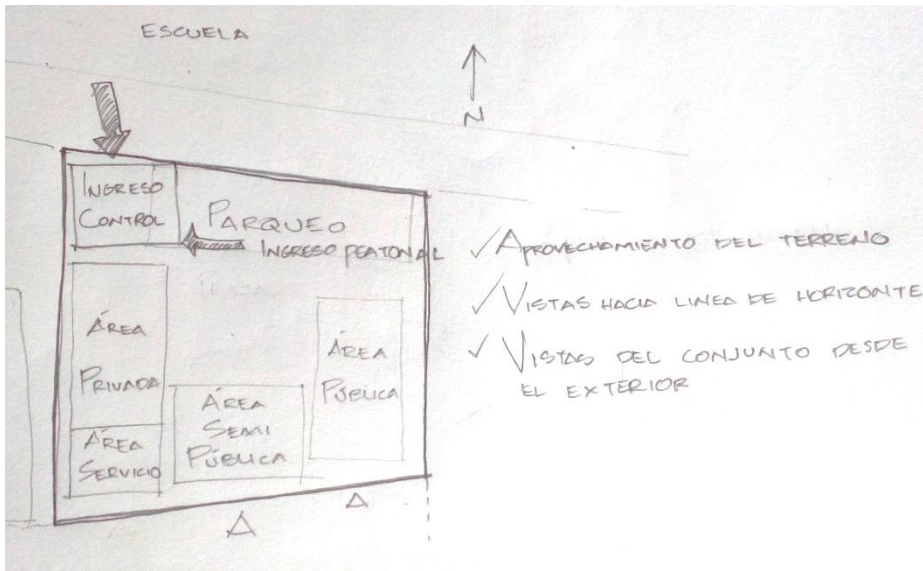 ESCUELA
N
INGRESO
CONTROL
PARQUEO
INGRESO PEATONAL
ÁREA
PRIVADA
ÁREA
SERVICIO
ÁREA
SEMI
PÚBLICA
ÁREA
PÚBLICA
✓ APROVECHAMIENTO DEL TERRENO
✓ VISTAS HACIA LINEA DE HORIZONTE
✓ VISTAS DEL CONJUNTO DESDE
EL EXTERIOR